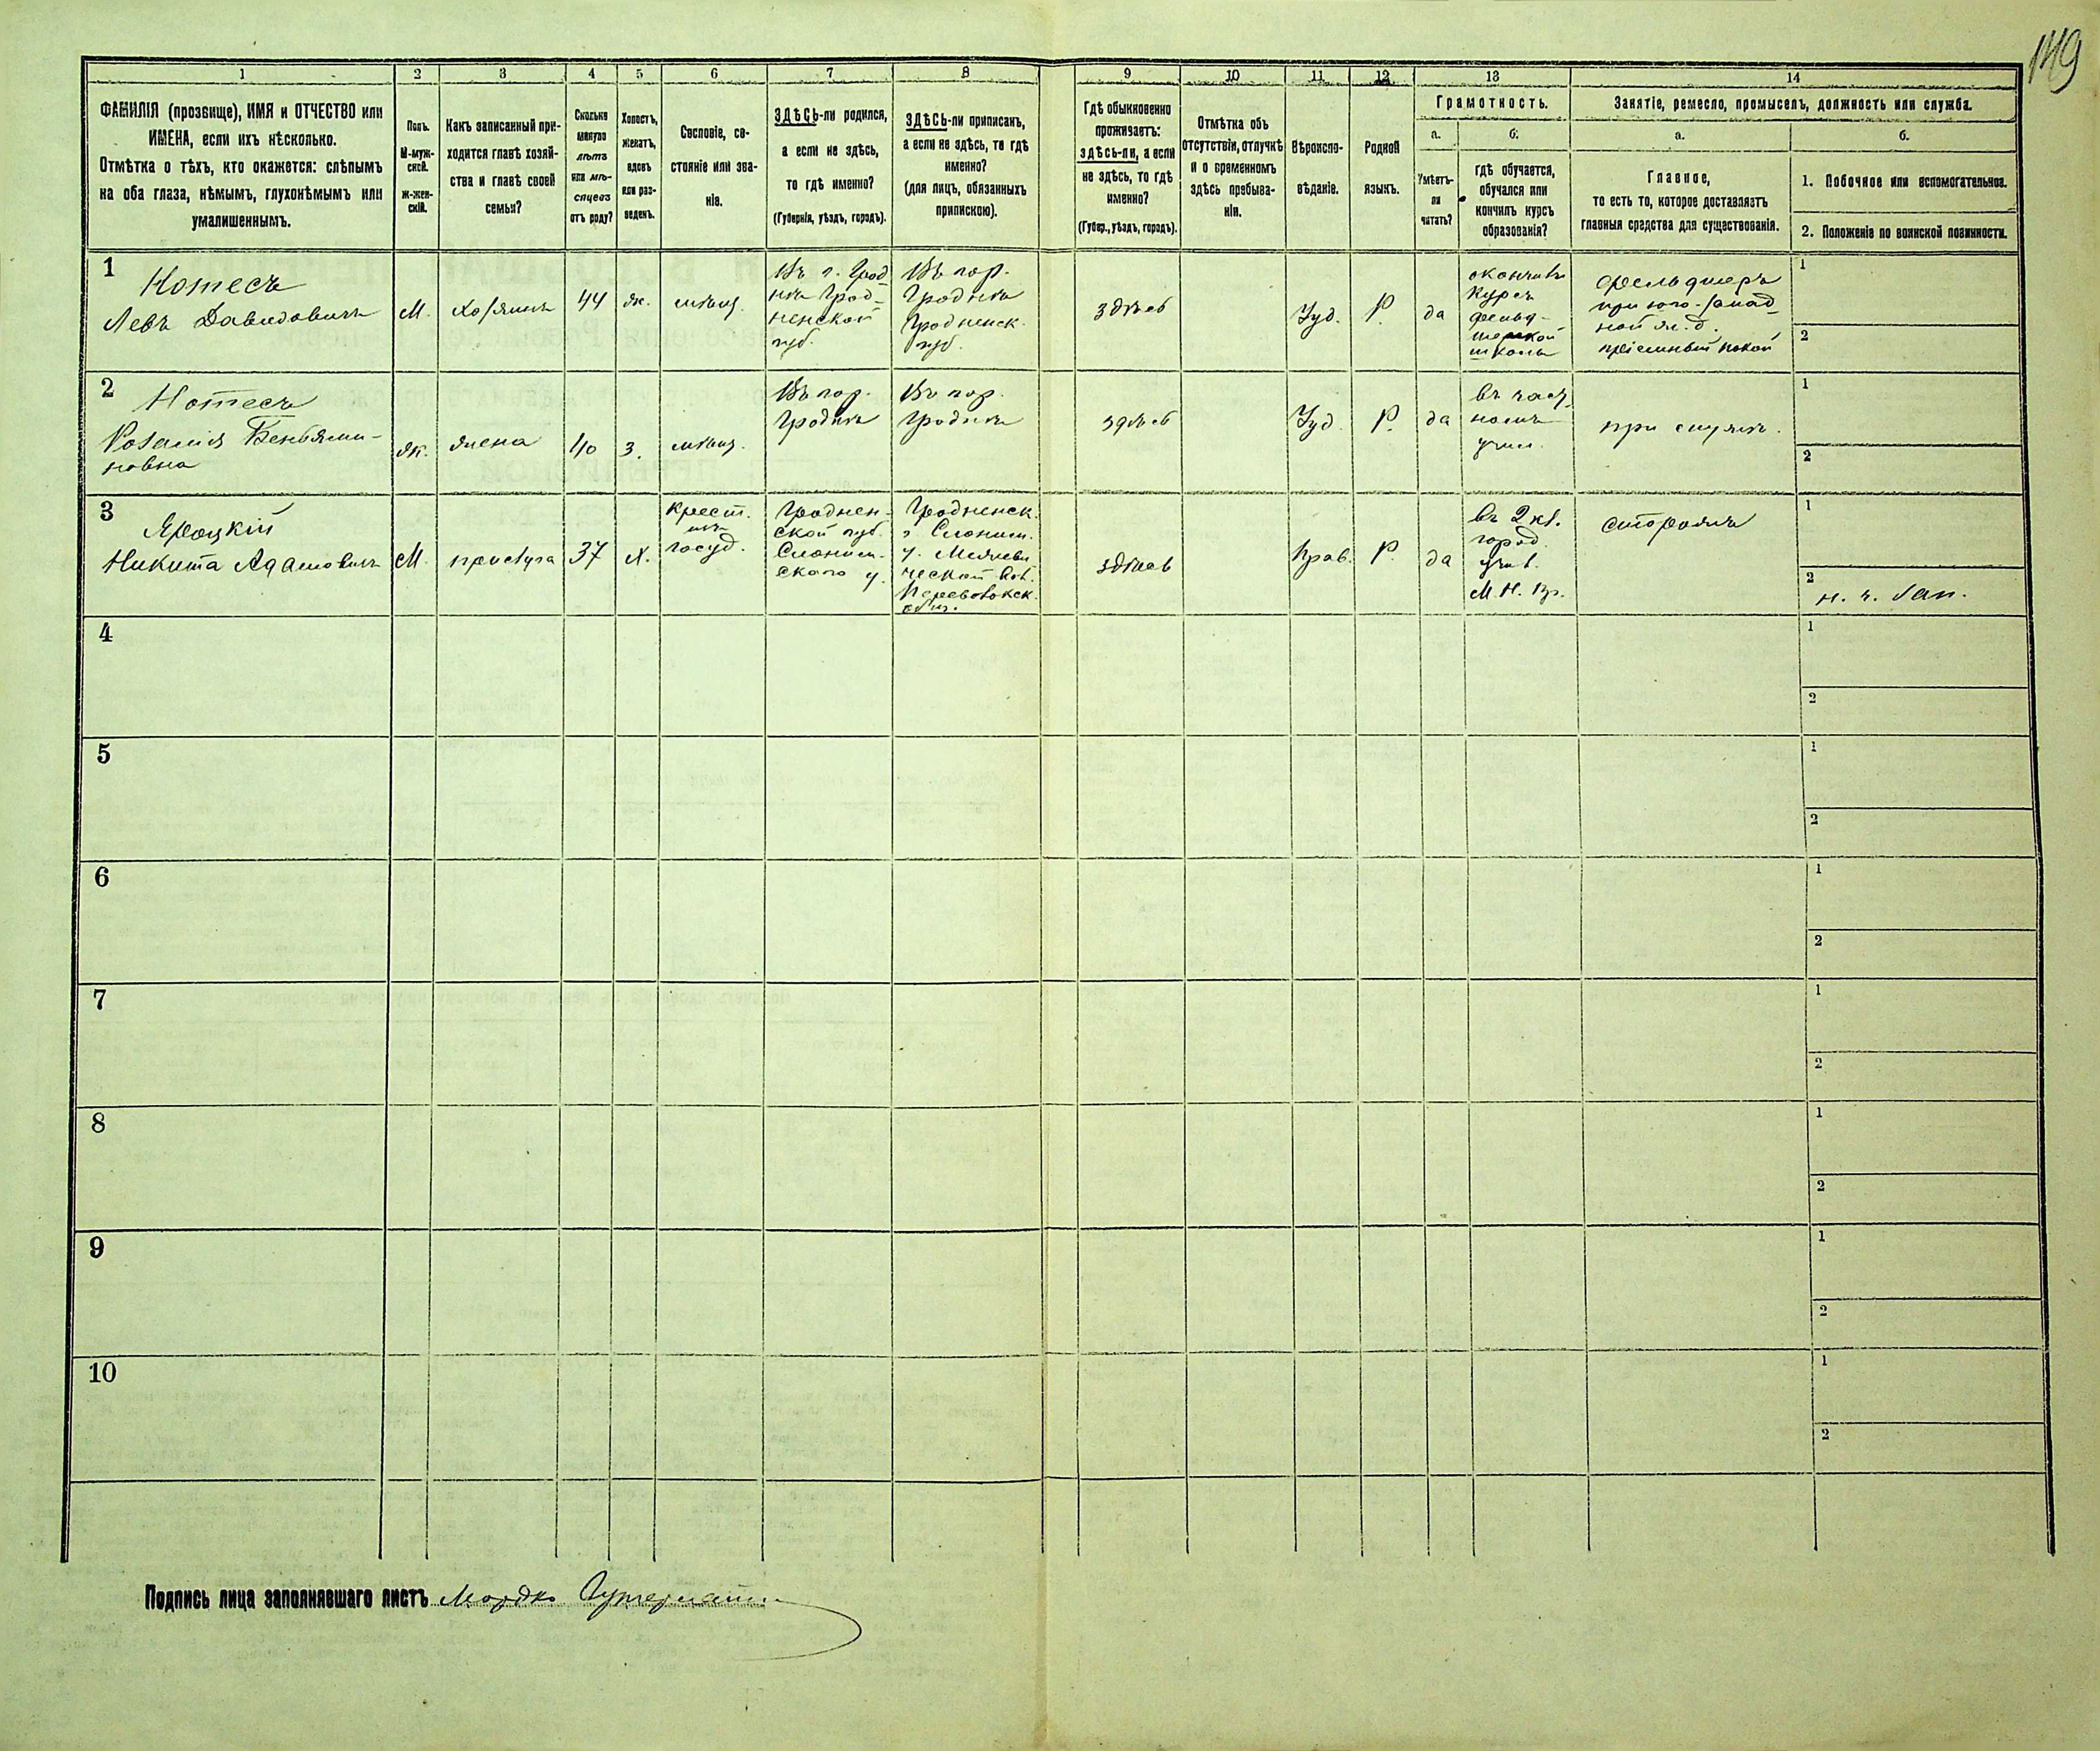 149
1 2 3 4 5 6 7 8 9 10 11 12 13 14
ФАМИЛІЯ (прозвище), ИМЯ и ОТЧЕСТВО или
ИМЕНА, если ихъ нѣсколько.
Отмѣтка о тѣхъ, кто окажется: слѣпымъ
на оба глаза, нѣмымъ, глухонѣмымъ или
умалишеннымъ.
Полъ.
М-муж-
ской.
Ж-жен-
скій.
Какъ записанный при-
ходится главѣ хозяй-
ства и главѣ своей
семьи?
Сколько
минуло
лѣтъ
или мѣ-
сяцевъ
отъ роду?
Холостъ,
женатъ,
вдовъ
или раз-
веденъ.
Сословіе, со-
стояніе или зва-
ніе.
ЗДѢСЬ-ли родился,
а если не здѣсь,
то гдѣ именно?
(Губернія, уѣздъ, городъ).
ЗДѢСЬ-ли приписанъ,
а если не здѣсь, то гдѣ
именно?
(для лицъ, обязанныхъ
припискою).
Гдѣ обыкновенно
проживаетъ:
здѣсь-ли, а если
не здѣсь, то гдѣ
именно?
(Губер., уѣздъ, городъ).
Отмѣтка объ
отсутствіи, отлучкѣ
и о временномъ
здѣсь пребыва-
ніи.
Вѣроиспо-
вѣданіе.
Родной
языкъ.
Грамотность.
а.
Умѣетъ-
ли
читать?
б.
гдѣ обучается,
обучался или
кончилъ курсъ
образованія?
Занятіе, ремесло, промыселъ, должность или служба.
а.
Главное,
то есть то, которое доставляетъ
главныя средства для существованія.
б.
1. Побочное или вспомогательное.
2. Положеніе по воинской повинности.
1
Нотесъ
Левъ Давидовичъ
М.
хозяинъ
44
ж.
мѣщ.
Въ г. Грод
нѣ Грод-
ненской
губ.
Въ гор.
Гродна
Гродненск.
губ.
здѣсь
Іуд.
Р.
да
окончилъ
курсъ
фельд-
шерской
школы
фельдшеръ
при юго-запад
ной ж. д.
пріемный покой
1
2
2
Нотесъ
Розалія Беньями-
новна
ж.
жена
40
з.
мѣщ.
Въ гор.
Гроднѣ
Въ гор.
Гроднѣ
здѣсь
Іуд.
Р.
да
въ част-
номъ
учил.
при мужѣ.
1
2
3
Яроцкій
Никита Адамовичъ
М.
прислуга
37
х.
Крест.
изъ
госуд.
Гроднен-
ской губ.
Слоним-
скаго у.
Гродненск.
г. Слоним.
у.
здѣсь
Прав.
Р.
да
въ 2 кл.
город.
учил.
М. Н. Пр.
сторожъ
1
2
н. ч. зап.
4
1
2
5
1
2
6
1
2
7
1
2
8
1
2
9
1
2
10
1
2
Подпись лица заполнявшаго листъ Мордко Гутерманъ